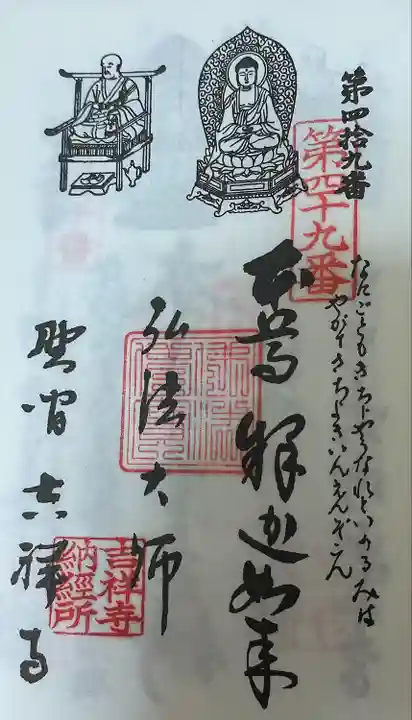 第四拾九番
第四十九番
なにごともきちじやうなれといのるみは
やがて いんえんぞこん
本尊 釋迦如来
弘法大師
野間 吉祥寺
吉祥寺
納経所